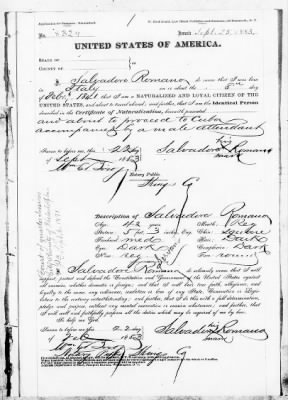 No. 8324
Issued Sept. 25, 1883
UNITED STATES OF AMERICA.
STATE OF
COUNTY OF
I, Salvadore Romano do swear that I was born
in Italy on or about the 5th day
of Feby, 1841 that I am a NATURALIZED AND LOYAL CITIZEN OF THE
UNITED STATES, and about to travel abroad; and further, that I am the Identical Person
described in the Certificate of Naturalization, herewith presented
and about to proceed to Cuba
accompanied by a male attendant
Sworn to before me, this 22 day
of Sept 1883
Salvadore Romano
his
mark
Notary Public
Kings Co
Description of Salvadore Romano
Age: 42 years
Mouth: Reg
Stature: 5 ft 3 inches
Chin: Square
Forehead: med
Hair: Dark
Eyes: Dark
Complexion: Dark
Nose: reg
Face: round
I, Salvadore Romano do solemnly swear that I will
support, protect and defend the Constitution and Government of the United States against
all enemies, whether domestic or foreign; and that I will bear true faith, allegiance, and
loyalty to the same, any ordinance, resolution or law of any State, Convention or Legislature
to the contrary notwithstanding; and further, that I do this with a full determination,
pledge and purpose, without any mental reservation or evasion whatsoever; and further, that
I will well and faithfully perform all the duties which may be required of me by law.
So help me God.
Sworn to before me this 22 day
Salvadore Romano
his
mark
of Sept 1883
Notary Public Kings Co